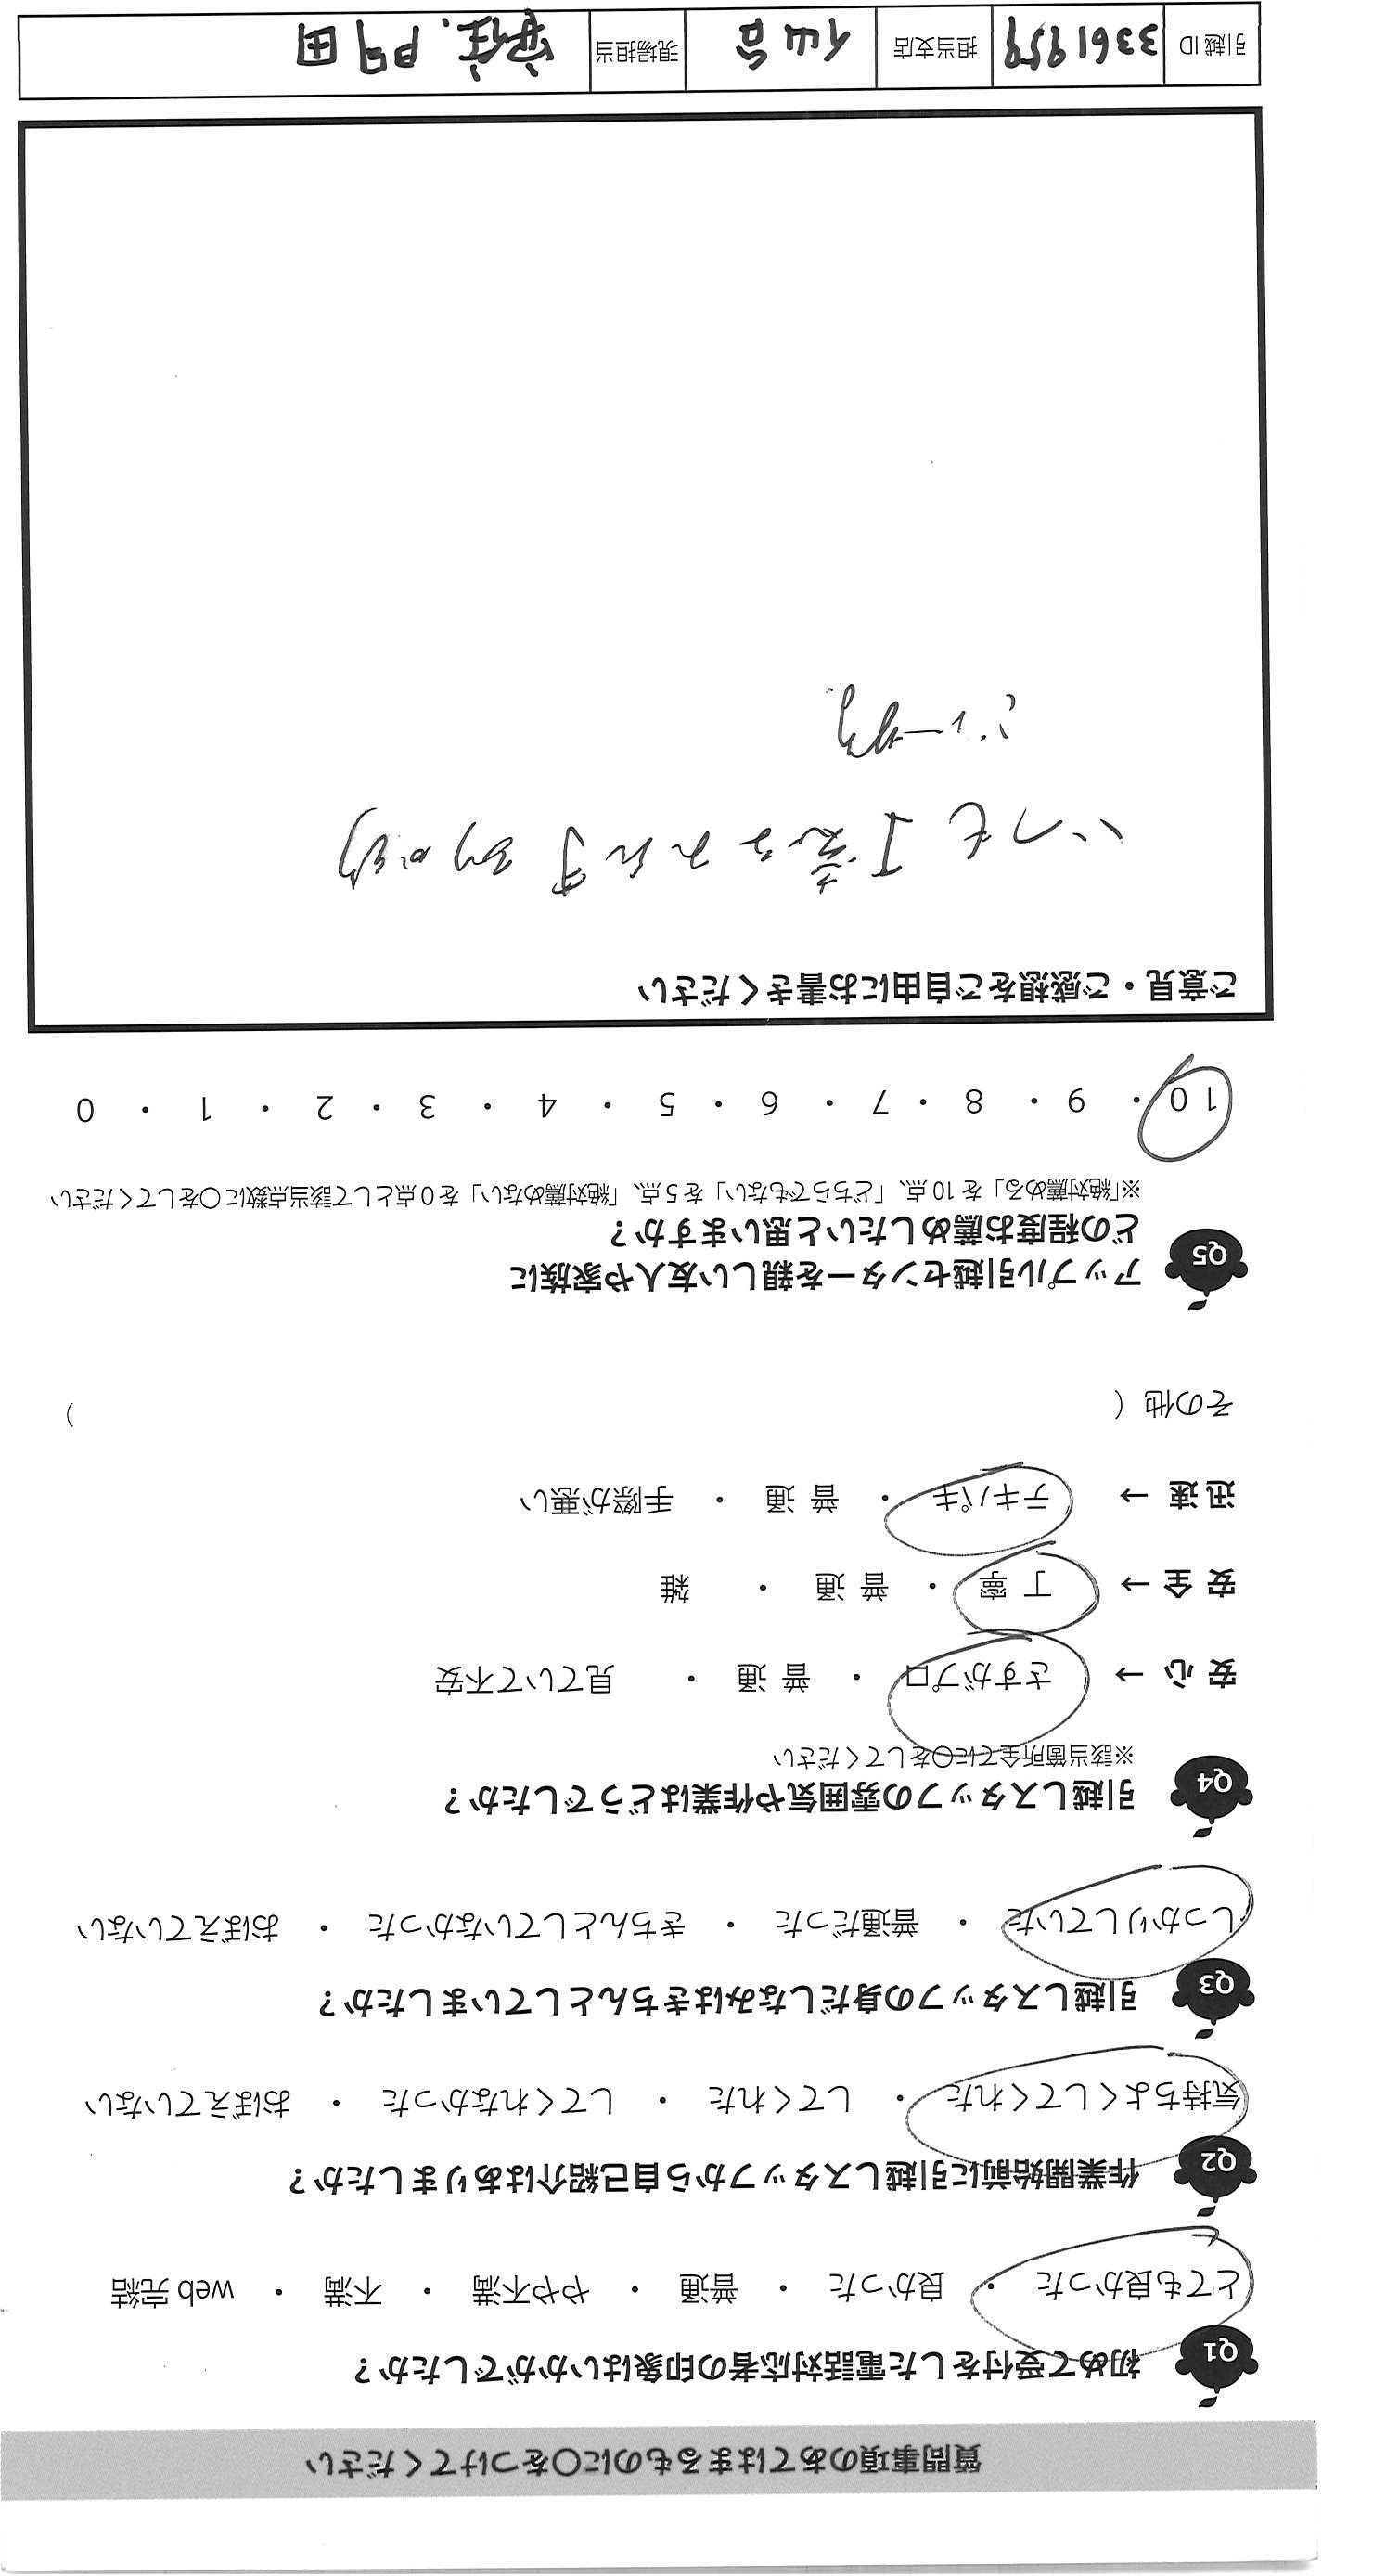 質問事項のあてはまるものに○をつけてください
Q1 初めて受付をした電話対応者の印象はいかがでしたか？
とても良かった ・ 良かった ・ 普通 ・ やや不満 ・ 不満 ・ web 完結
Q2 作業開始前に引越しスタッフから自己紹介はありましたか？
気持ちよくしてくれた ・ してくれた ・ してくれなかった ・ おぼえていない
Q3 引越しスタッフの身だしなみはきちんとしていましたか？
しっかりしていた ・ 普通だった ・ きちんとしていなかった ・ おぼえていない
Q4 引越しスタッフの雰囲気や作業はどうでしたか？
※該当箇所全てに○をしてください
安心 → さすがプロ ・ 普通 ・ 見ていて不安
安全 → 丁寧 ・ 普通 ・ 雑
迅速 → テキパキ ・ 普通 ・ 手際が悪い
その他（ ）
Q5 アップル引越センターを親しい友人や家族に
どの程度お薦めしたいと思いますか？
※「絶対薦める」を 10 点、「どちらでもない」を 5 点、「絶対薦めない」を 0 点として該当点数に○をしてください
10 ・ 9 ・ 8 ・ 7 ・ 6 ・ 5 ・ 4 ・ 3 ・ 2 ・ 1 ・ 0
ご意見・ご感想をご自由にお書きください
いつも丁寧な
引越 ID 3361959 担当支店 仙台 現場担当 安住.門田